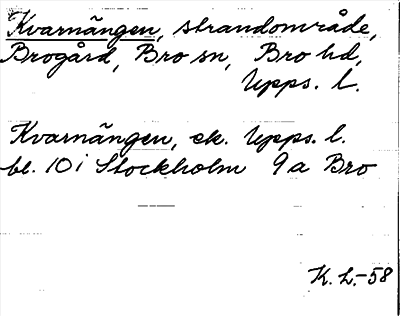 Kvarnängen, strandområde,
Brogård, Bro sn, Bro hd,
Upps. l.
Kvarnängen, ek. Upps. l.
bl. 10 i Stockholm 9a Bro
K. L.-58